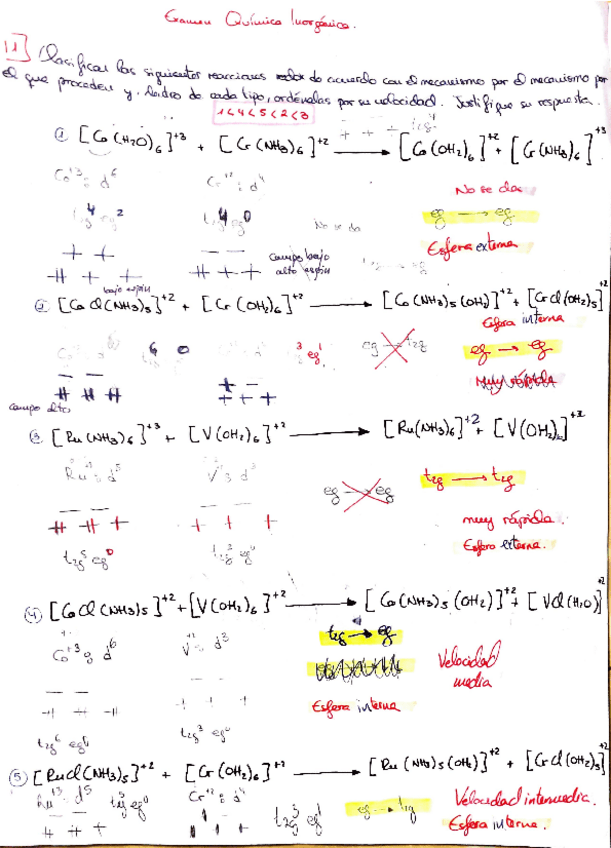 Examen Química Inorgánica.
1.1 Clasificar las siguientes reacciones redox de acuerdo con el mecanismo por el mecanismo por
el que proceden y, dentro de cada tipo, ordénelas por su velocidad. Justifique su respuesta.
1<4<5<2<3
① [Co(H2O)6]+3 + [Cr(NH3)6]+2 → [Co(OH2)6]+2 + [Cr(NH3)6]+3
Co+3: d6
Cr+2: d4
No se da
t2g4 eg2
t2g4 eg0
No se da
eg → eg
Esfera externa
campo bajo
alto espín
bajo espín
② [CoCl(NH3)5]+2 + [Cr(OH2)6]+2 → [Co(NH3)5(OH2)]+2 + [CrCl(OH2)5]+2
Esfera interna
6 0
3 eg1
eg → t2g
eg → eg
Muy rápida
campo alto
③ [Ru(NH3)6]+3 + [V(OH2)6]+2 → [Ru(NH3)6]+2 + [V(OH2)
Ru: d5
V: d3
eg → eg
t2g → t2g
muy rápida.
Esfera externa.
t2g5 eg0
t2g3 eg0
④ [CoCl(NH3)5]+2 + [V(OH2)6]+2 → [Co(NH3)5(OH2)]+2 + [VCl(H2O)]+2
Co+3: d6
V: d3
t2g → eg
Velocidad
media
Esfera interna
t2g6 eg0
t2g3 eg0
⑤ [RuCl(NH3)5]+2 + [Cr(OH2)6]+2 → [Ru(NH3)5(OH2)]+2 + [CrCl(OH2)5]+2
Ru+3: d5
t2g5 eg0
Cr+2: d4
t2g3 eg1
eg → t2g
Velocidad intermedia.
Esfera interna.